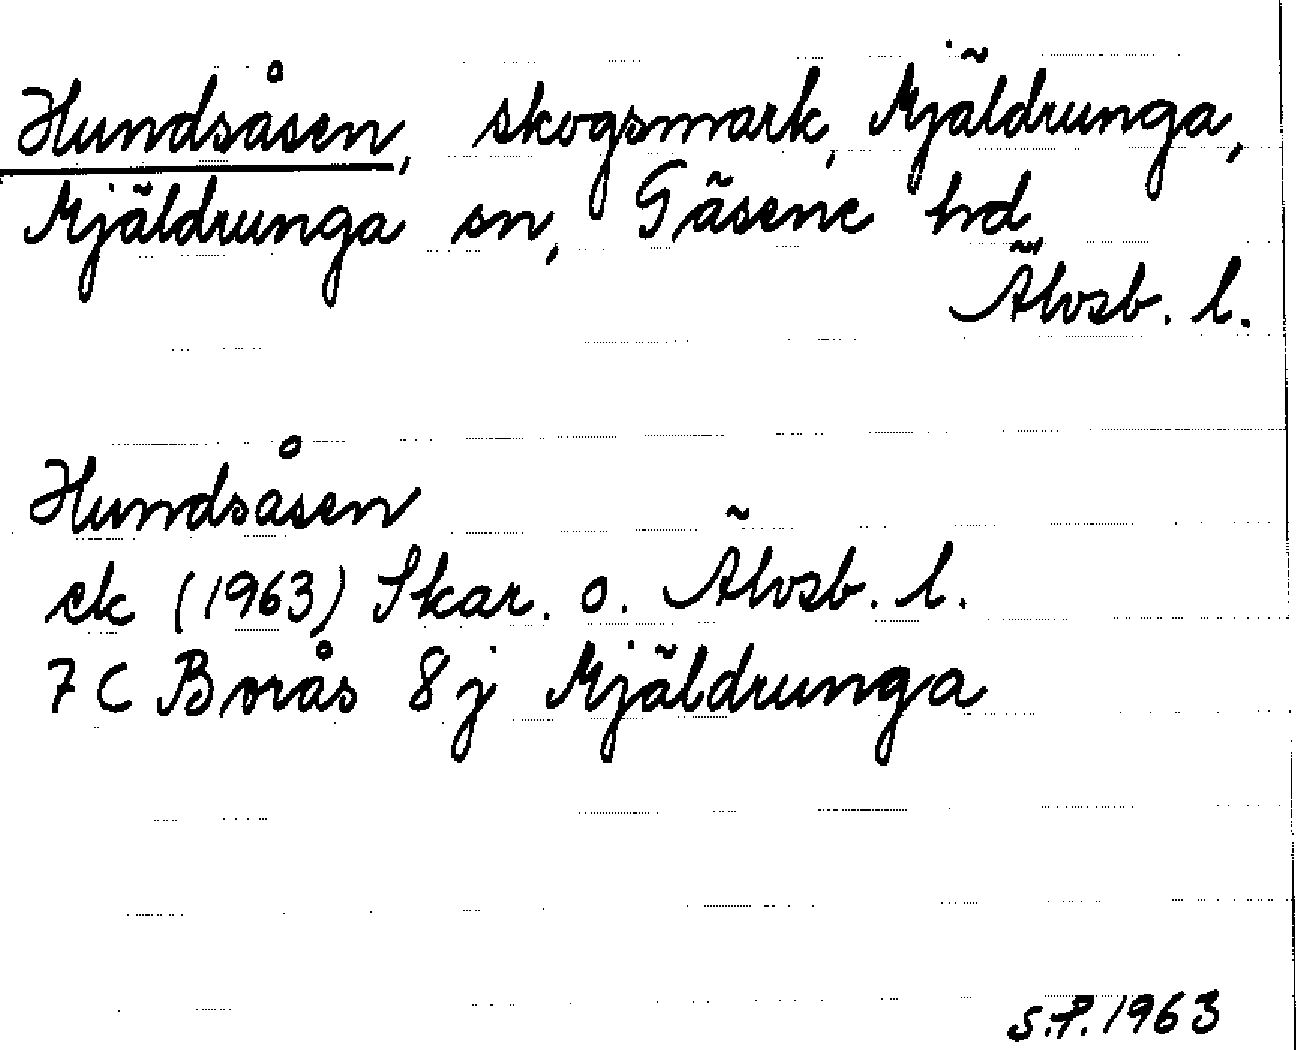 Hundsåsen, skogsmark, Mjäldrunga,
Mjäldrunga sn, Gäsene hd
Älvsb. l.
Hundsåsen
ek (1963) Skar. o. Älvsb. l.
7 C Borås 8 j Mjäldrunga
S.P. 1963